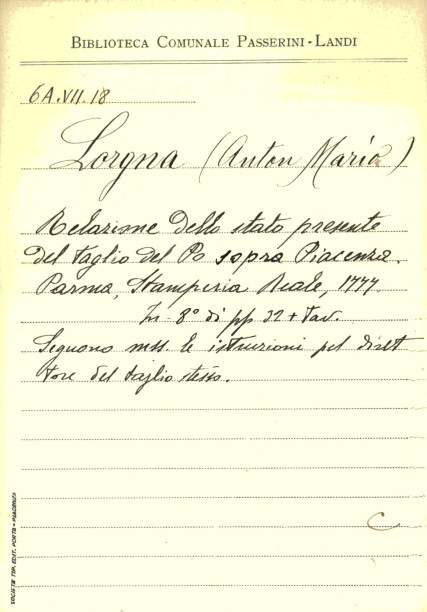 BIBLIOTECA COMUNALE PASSERINI-LANDI
6A.VII.18
Lorgna (Anton Maria)
Relazione dello stato presente
del taglio del Po sopra Piacenza.
Parma, Stamperia Reale, 1777.
In-8° di pp 32 + tav.
Seguono mss. le istruzioni pel diret
tore del taglio stesso.
C